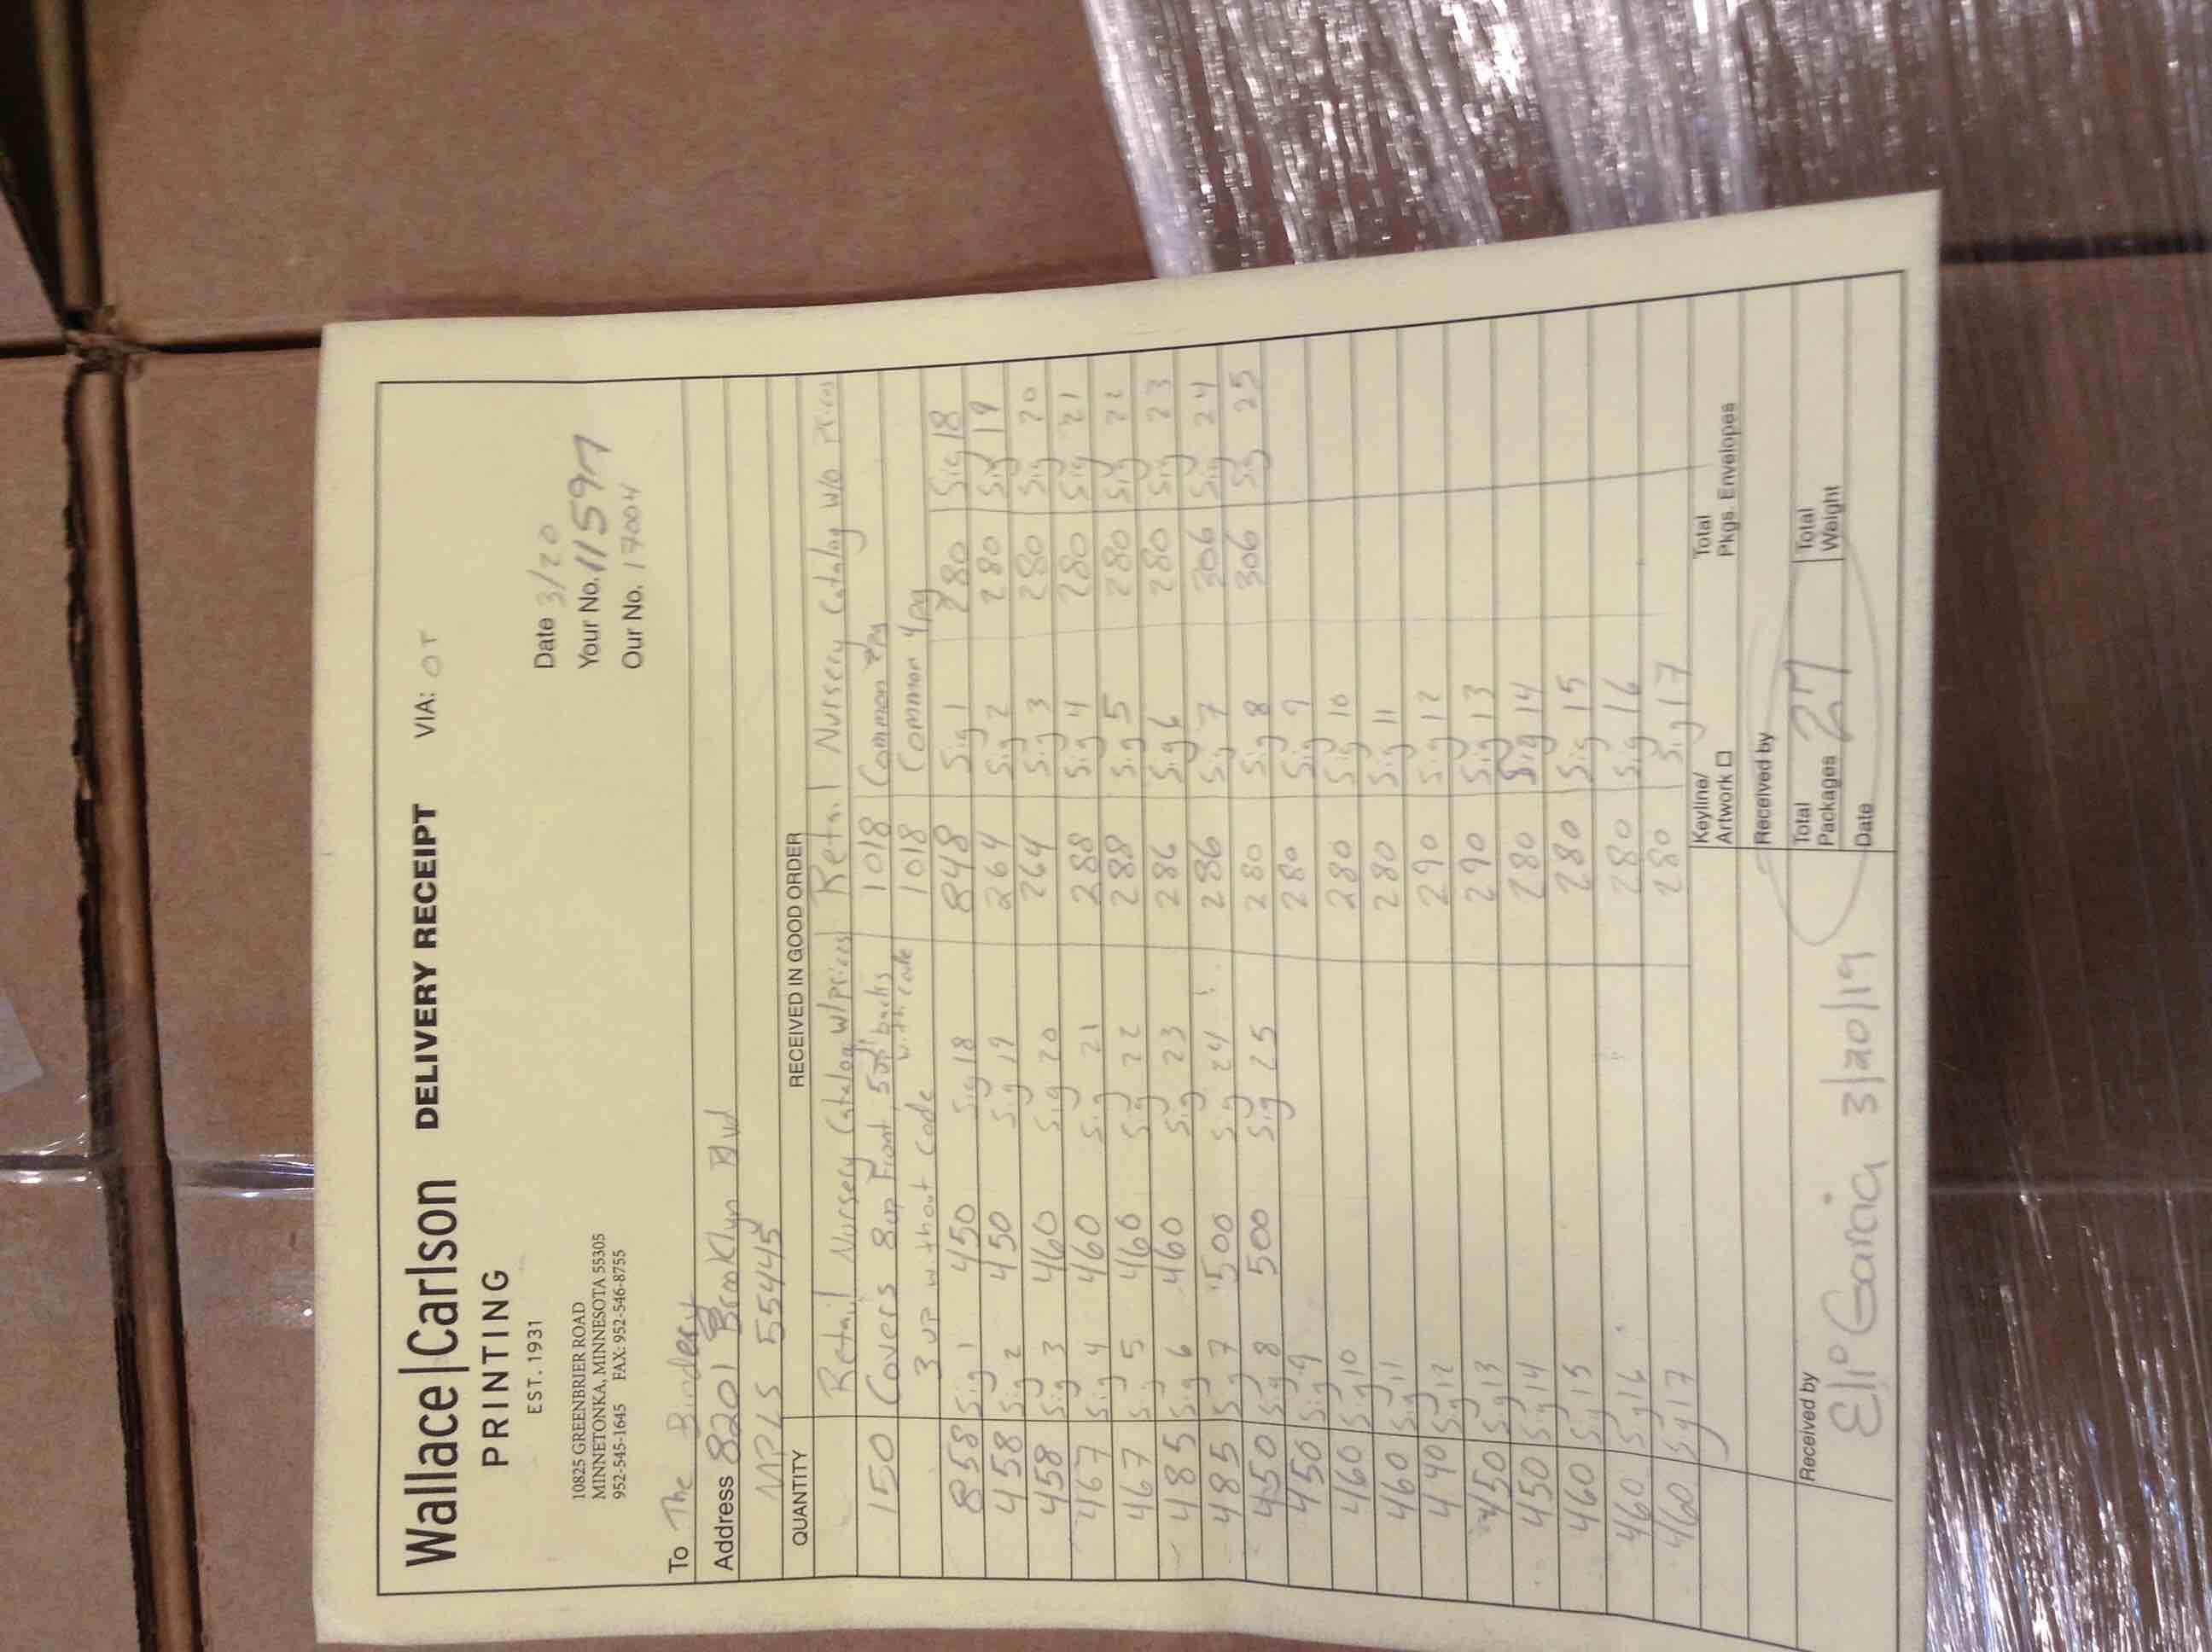 Wallace|Carlson DELIVERY RECEIPT VIA: OT
PRINTING
EST. 1931
Date 3/20
10825 GREENBRIER ROAD
MINNETONKA, MINNESOTA 55305
952-545-1645 FAX: 952-546-8755
Your No. 11597
Our No. 17004
To The Bindery
Address 8201 Brooklyn Blvd
MPLS 55445
QUANTITY RECEIVED IN GOOD ORDER
Retail Nursery Catalog w/prices Retail Nursery Catalog w/o Prices
150 Covers 8up Front, 5up backs with code 1018 Common 2pg
3 up without code 1018 Common 4pg
858 Sig 1 450 Sig 18 848 Sig 1 280 Sig 18
458 Sig 2 450 Sig 19 264 Sig 2 280 Sig 19
458 Sig 3 460 Sig 20 264 Sig 3 280 Sig 20
467 Sig 4 460 Sig 21 288 Sig 4 280 Sig 21
467 Sig 5 460 Sig 22 288 Sig 5 280 Sig 22
485 Sig 6 460 Sig 23 286 Sig 6 280 Sig 23
485 Sig 7 500 Sig 24 286 Sig 7 306 Sig 24
450 Sig 8 500 Sig 25 280 Sig 8 306 Sig 25
450 Sig 9 280 Sig 9
460 Sig 10 280 Sig 10
460 Sig 11 280 Sig 11
440 Sig 12 290 Sig 12
450 Sig 13 290 Sig 13
450 Sig 14 280 Sig 14
460 Sig 15 280 Sig 15
460 Sig 16 280 Sig 16
460 Sig 17 280 Sig 17
Keyline/ Artwork Total Pkgs. Envelopes
Received by
Received by Total Packages 27 Total Weight
Elio Garcia 3/20/19 Date